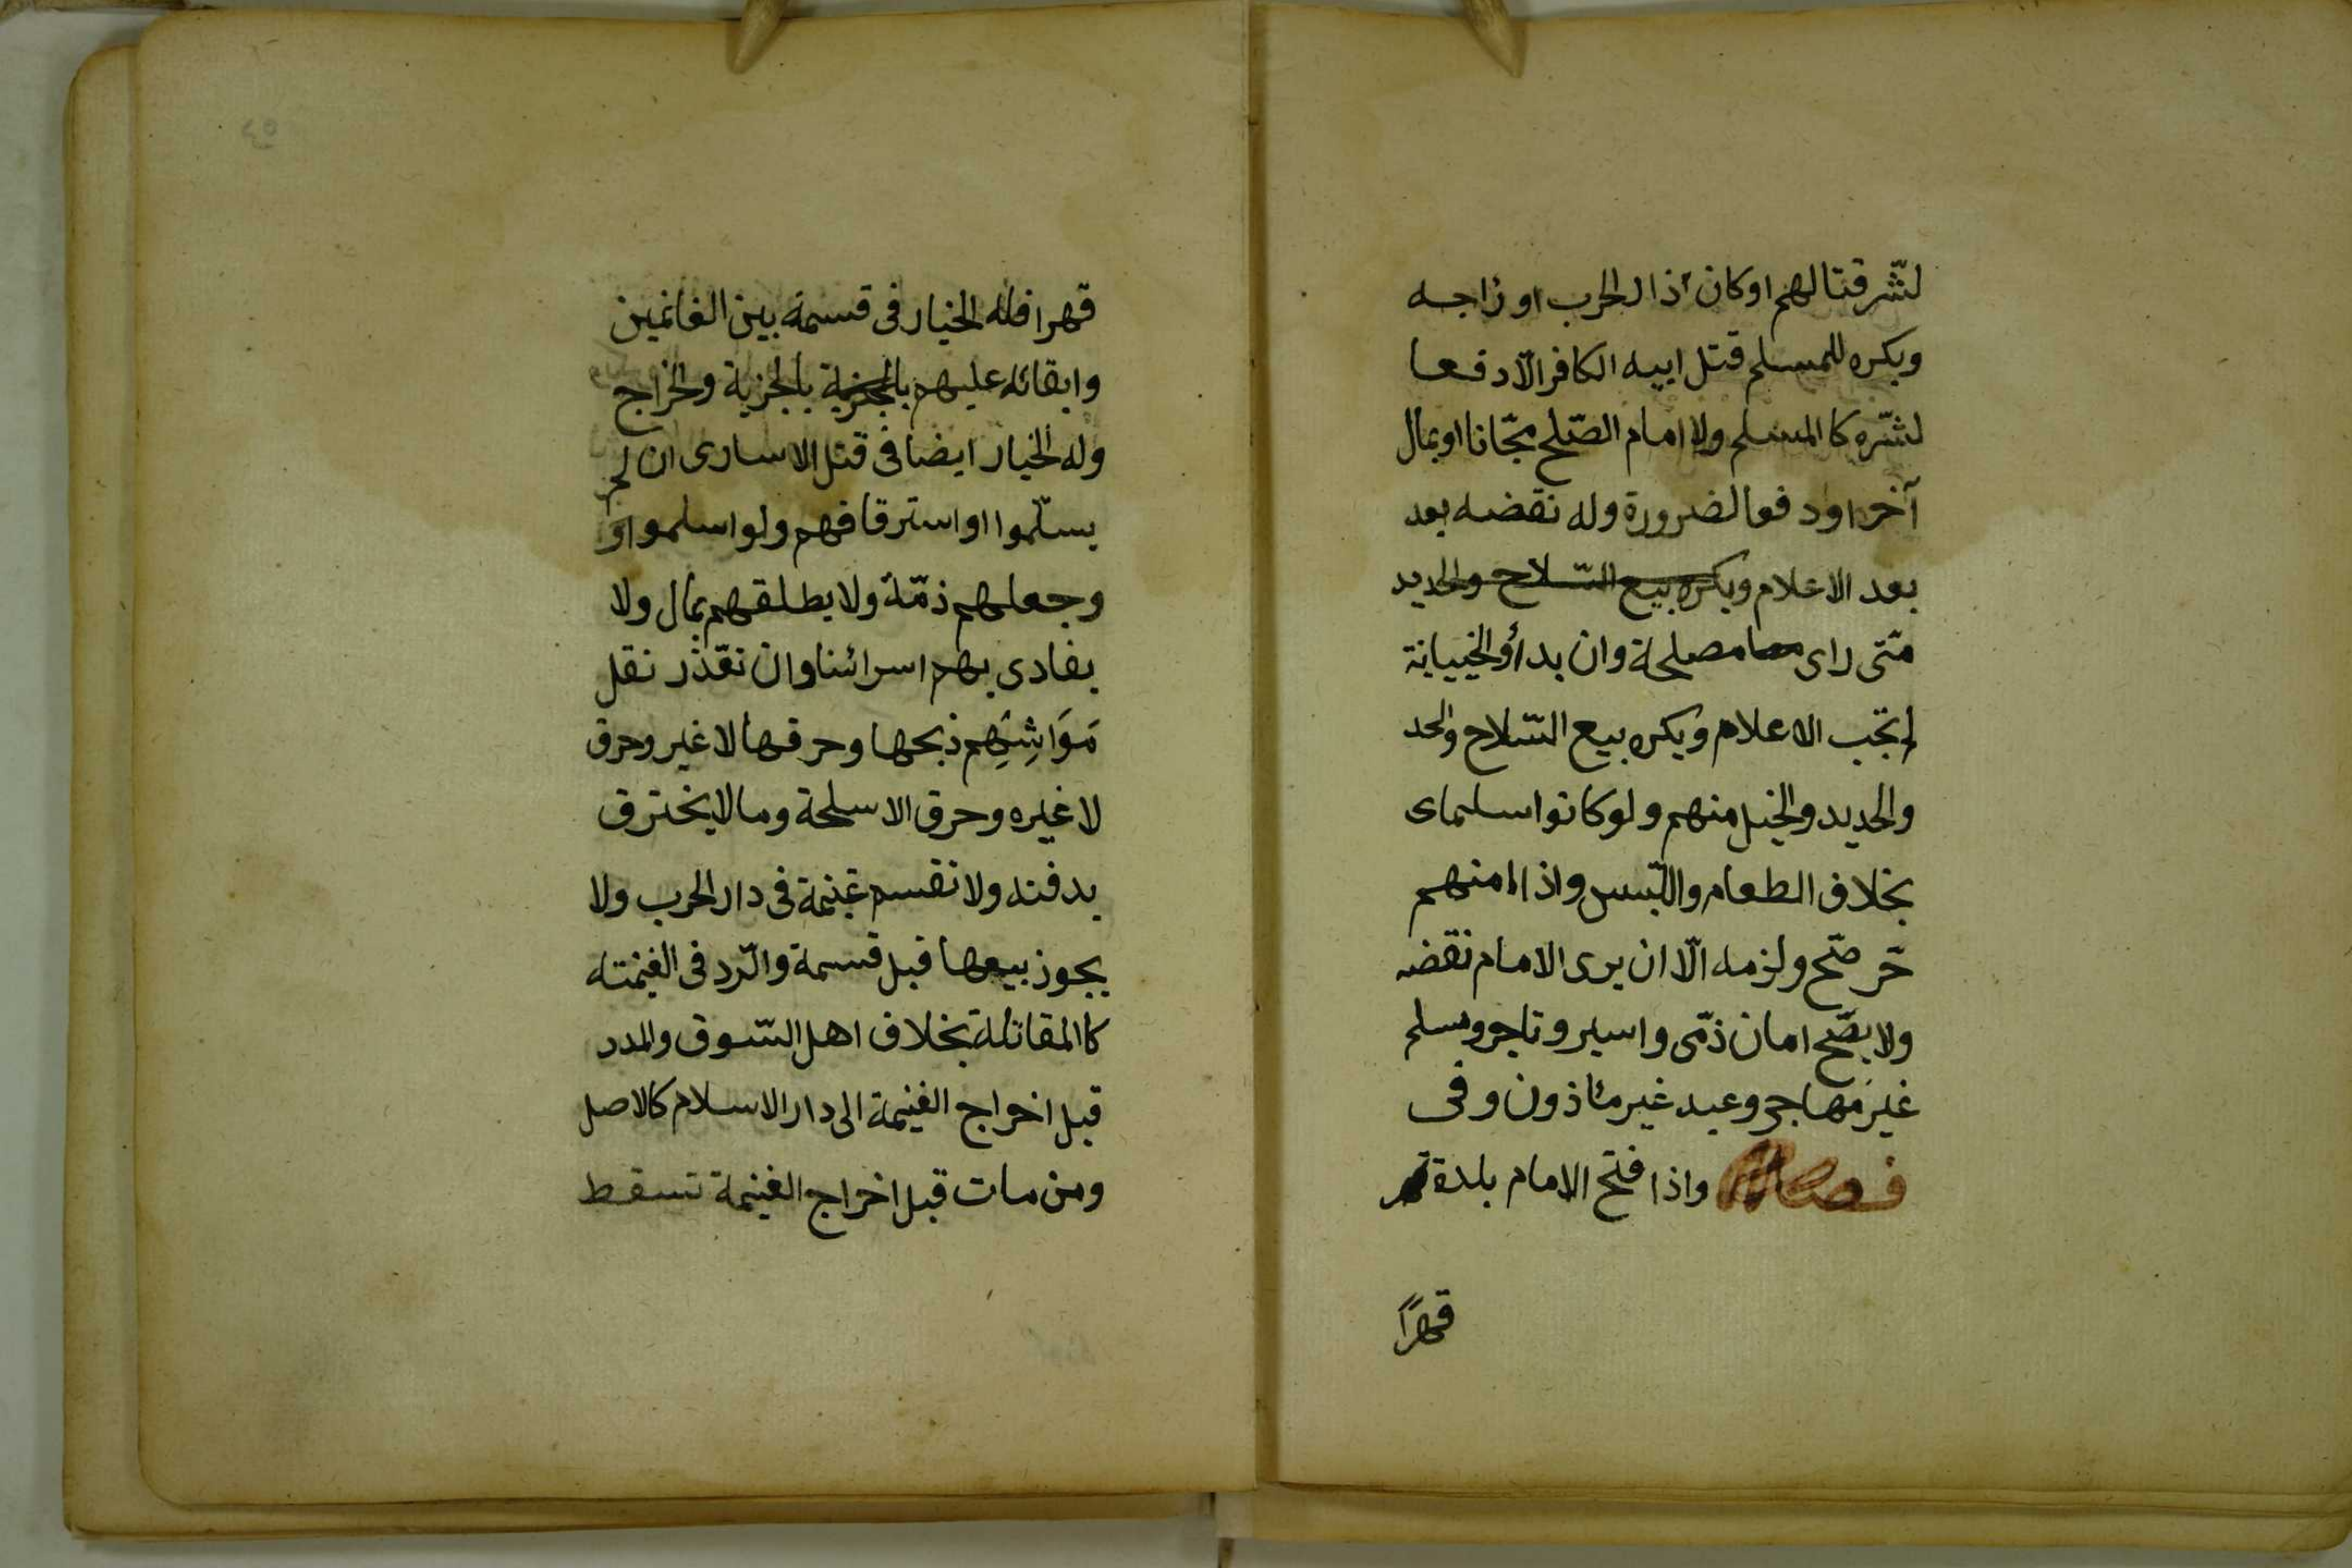 لشّر قتالهم او كان ذا الحرب او زاجه
ويكره للمسلم قتل ابيه الكافر الّا دفعا
لشّره كا المسلم ولا امام الصّلح مجّانا او بمال
آخر او دفعا لضرورة وله نقضه بعد
بعد الاعلام ويكره بيع السّلاح والحديد
متى راى مصلحة وان بدأو الخييانة
لم تجب الاعلام ويكره بيع السّلاح والحد
والحديد والخيل منهم ولو كانوا سلماى
بخلاف الطعام واللّبس واذا امنهم
حّر صّح ولزمه الّا ان يرى الامام نقضه
ولا يصّح امان ذمّى واسير وتاجر ومسلم
غير مهاجر وعبد غير مئاذون وفى
فصل واذا فتح الامام بلدة
قهرًا
قهرا فله الخيار فى قسمة بين الغانمين
وابقائه عليهم بالجزية بالجزية والخراج
وله الخيار ايضا فى قتل الاسارى ان لم
يسلّموا او استرقاقهم ولو اسلموا او
وجعلهم ذمّة ولا يطلقهم بمال ولا
يفادى بهم اسرائنا وان تعّذر نقل
مَوَاشِيَهِم ذبحها وحرقها لا غير وحرق
لا غيره وحرق الاسلحة وما لا يخترق
يدفنه ولا نقسم غنيمة فى دار الحرب ولا
يجوز بيعها قبل قسمة والّرد فى الغنمته
كا المقاتلة بخلاف اهل السّوق والمدد
قبل اخراج الغنيمة الى دار الاسلام كالاصل
ومن مات قبل اخراج الغنيمة تسقط